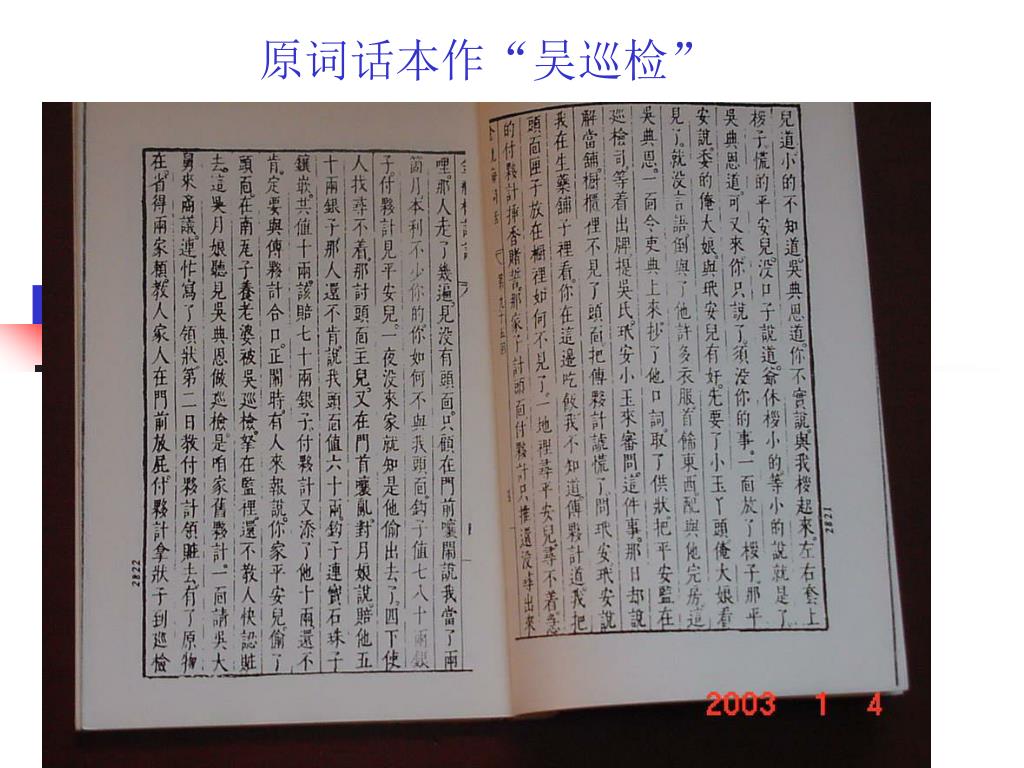 原词话本作“吴巡检”
兒道小的不知道吳典恩道你不實說與我桚起來左右套上
桚子慌的平安兒沒口子說道爺休桚小的等小的說就是了
吳典恩道可又來你只說了須沒你的事一面放了桚子那平
安說委的俺大娘與玳安兒有奸先要了小玉丫頭俺大娘看
見了就沒言語倒與了他許多衣服首餙東西配與他完房這
吳典恩一面令吏典上來抄了他口詞取了供狀把平安監在
巡檢司等着出牌提吳氏玳安小玉來審問這件事那日却說
解當舖櫥櫃裡不見了頭面把傅夥計諕慌了問玳安玳安說
我在生藥舖子裡看你在這邊吃飯我不知道傅夥計道我把
頭面匣子放在櫥裡如何不見了一地裡尋平安兒尋不着急
的付夥計揷香賭誓那家子討頭面付夥計只推還没尋出來
第九十五回
2821
哩那人走了幾遍見没有頭面只顧在門前嚷鬧說我當了兩
箇月本利不少你的你如何不與我頭面鈎子值七八十兩銀
子付夥計見平安兒一夜没來家就知是他偷出去了四下使
人找尋不着那討頭面主兒又在門首嚷亂對月娘說賠他五
十兩銀子那人還不肯說我頭面值六十兩鈎子連寶石珠子
鑲嵌共值十兩該賠七十兩銀子付夥計又添了他十兩還不
肯定要與傅夥計合口正鬧時有人來報說你家平安兒偷了
頭面在南瓦子養老婆被吳巡檢拏在監裡還不教人快認贓
去這吳月娘聽見吳典恩做巡檢是咱家舊夥計一面請吳大
舅來商議連忙寫了領狀第二日教付夥計領贓去有了原物
在省得兩家頼教人家人在門前放屁付夥計拿狀子到巡檢
2822
2003 1 4